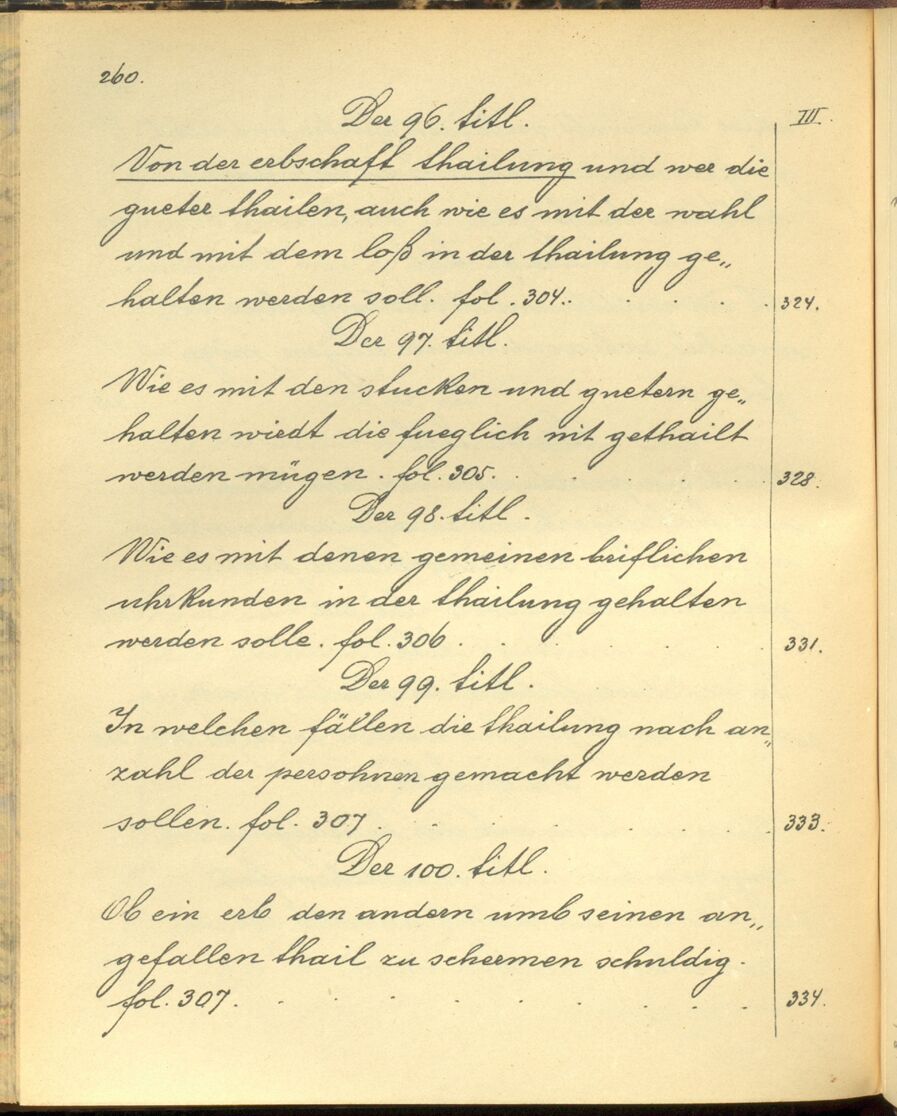 260.
Der 96. titl.
III.
Von der erbschaft thailung und wer die
gueter thailen, auch wie es mit der wahl
und mit dem loß in der thailung ge„
halten werden soll. fol. 304. . . . . . 324.
Der 97. titl.
Wie es mit den stucken und guetern ge„
halten wiedt die fueglich nit gethailt
werden mügen. fol. 305. . . . 328.
Der 98. titl.
Wie es mit denen gemeinen briflichen
uhrkunden in der thailung gehalten
werden solle. fol. 306 . . . . . . 331.
Der 99. titl.
In welchen fällen die thailung nach an„
zahl der persohnen gemacht werden
sollen. fol. 307 . . . . . . . 333.
Der 100. titl.
Ob ein erb den andern umb seinen an„
gefallen thail zu schermen schuldig.
fol. 307. . . . . . . . . . 334.